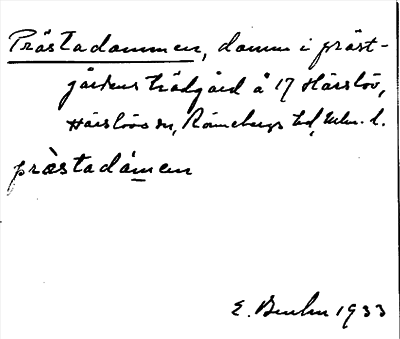 Prästadammen, damm i präst-
gårdens trädgård å 17 Härslöv,
Härslövs sn, Rönnebergs hd, Mlm. l.
prä̀stadámen
E. 1933